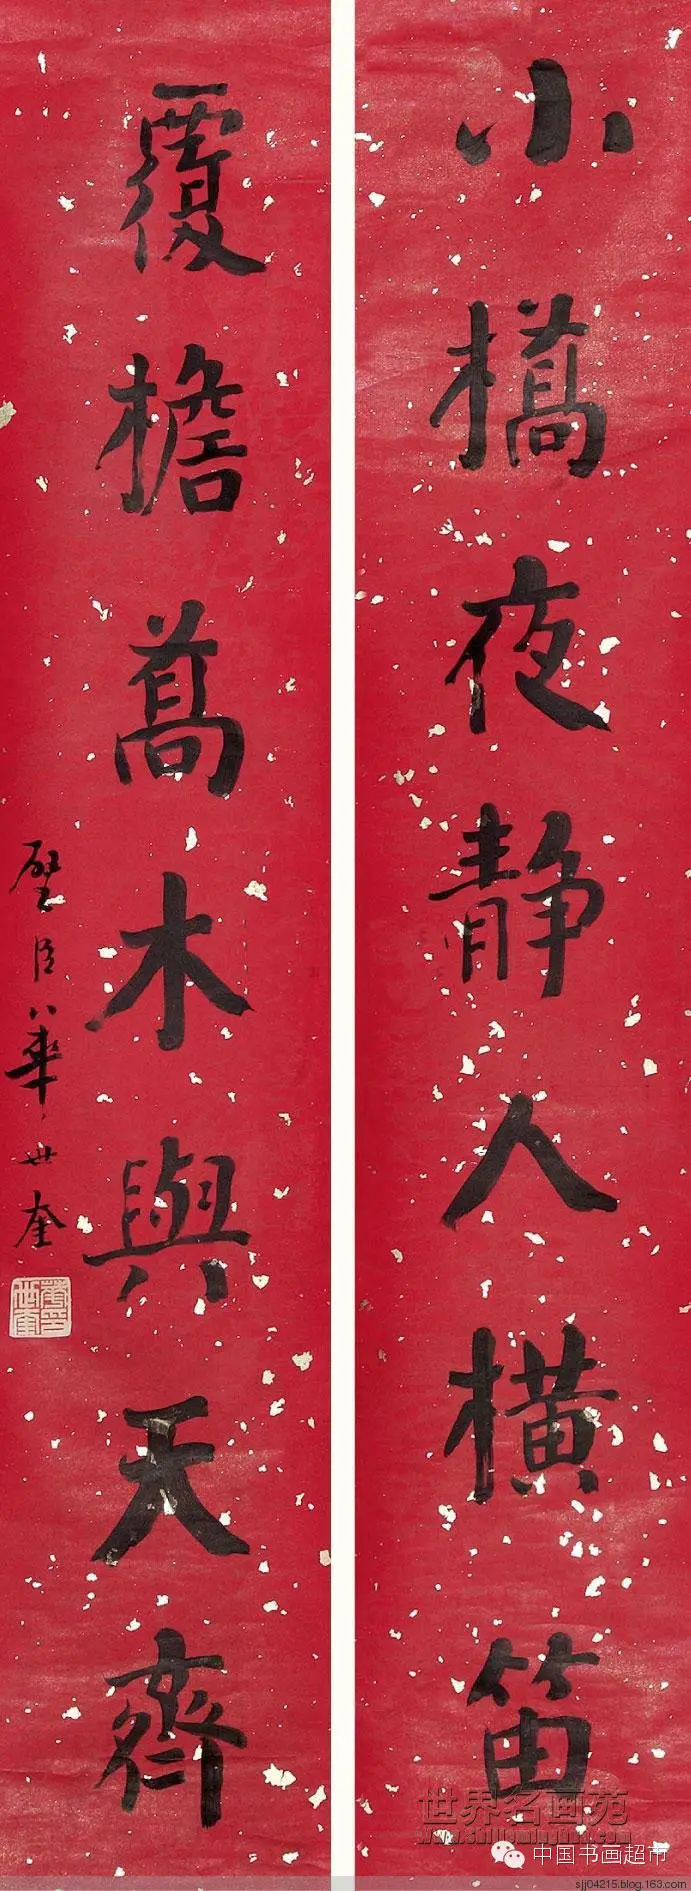 小橋夜静人橫笛
覆檐喬木與天齊
璧臣華世奎
世界名画苑
中国书画超市
sjj04215.blog.163.com